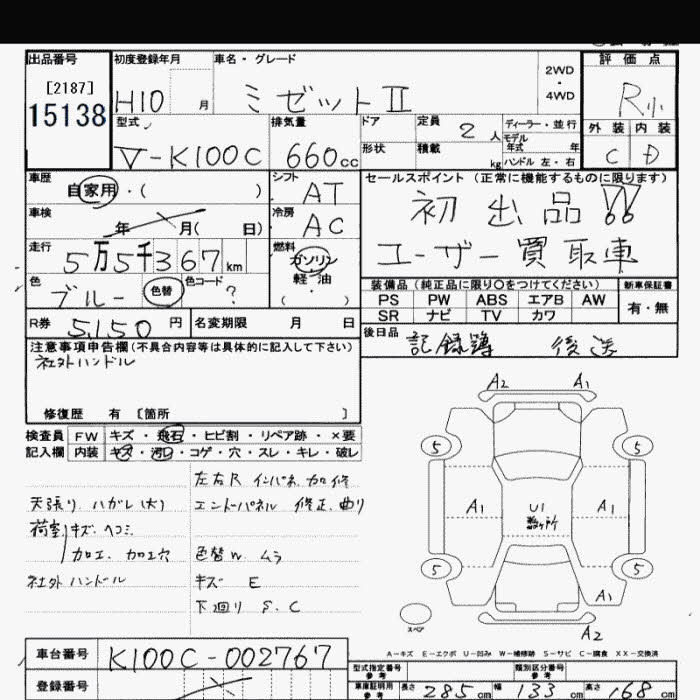 出品番号 初度登録年月 車名・グレード 評価点
[2187] 2WD・4WD R小
15138 H10 月 ミゼットⅡ
型式 排気量 ドア 定員 2 人 ディーラー・並行 外装 内装
モデル年式 年
V-K100C 660cc 形状 積載 kg ハンドル 左・右 C D
車歴 シフト セールスポイント(正常に機能するものに限ります)
自家用・( ) AT 初出品!!
車検 年 月( 日) 冷房 AC ユーザー買取車
走行 燃料
5万5千367km ガソリン・軽油・( )
色 色替 色コード 装備品(純正品に限り○をつけてください) 新車保証書
ブルー ? PS PW ABS エアB AW 有・無
SR ナビ TV カワ
R券 5,150円 名変期限 月 日 後日品
注意事項申告欄(不具合内容等は具体的に記入して下さい) 記録簿 後送
社外ハンドル
修復歴 有 〔箇所 〕
A2 A1
検査員 FW キズ・飛石・ヒビ割・リペア跡・×要
記入欄 内装 キズ・汚れ・コゲ・穴・スレ・キレ・破レ
5 5
左右R インパネ加修
天張り ハガレ(大) エンドーパネル 修正、曲り
A1 U1 数ヶ所 A1
荷室キズ ヘコミ
加工、加工穴 色替W ムラ
社外ハンドル キズ E
5 5
下廻り S、C
A1
スペア
A2
A-キズ E-エクボ U-凹み W-補修跡 S-サビ C-腐食 XX-交換済
車台番号 K100C-002767
型式指定番号 参考 類別区分番号 参考
登録番号 車庫証明用 参考 長さ 285cm 幅 133cm 高さ 168cm